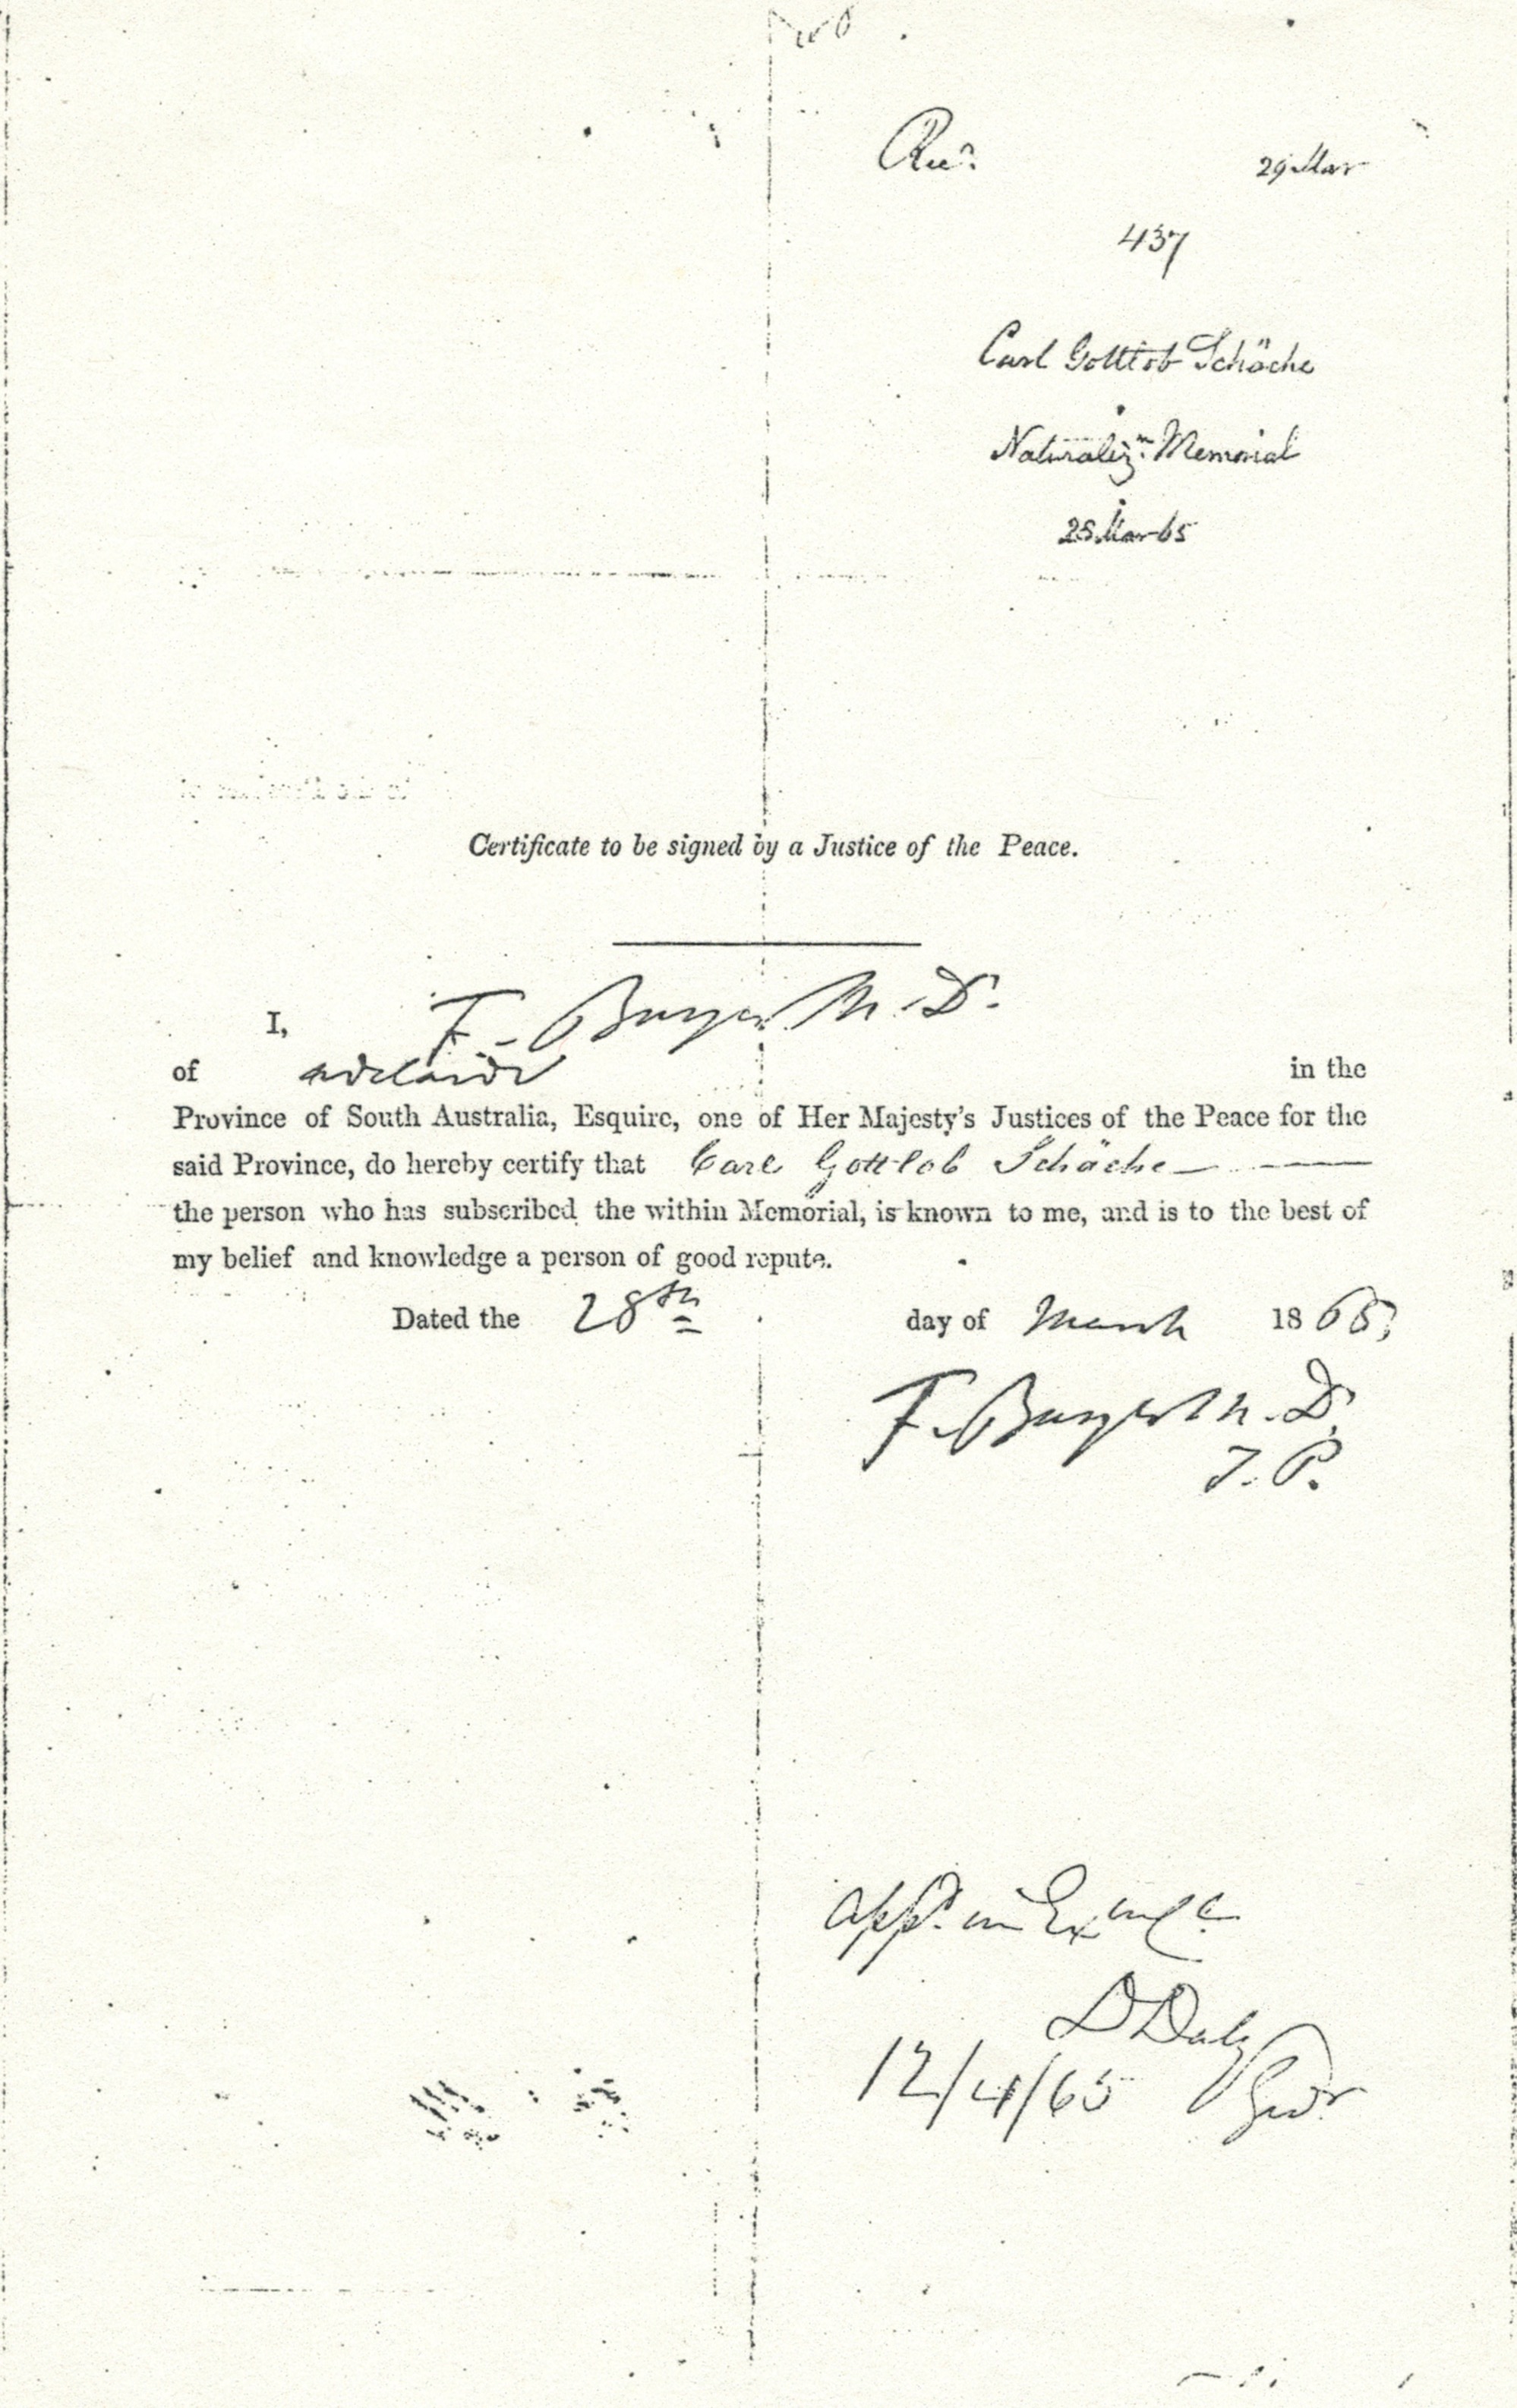 29 Mar
437
Carl Gottlob Schäche
Naturalizn. Memorial
28 Mar 65
Certificate to be signed by a Justice of the Peace.
I, F. M.D.
of adelaide in the
Province of South Australia, Esquire, one of Her Majesty's Justices of the Peace for the
said Province, do hereby certify that Carl Gottlob Schäche
the person who has subscribed the within Memorial, is known to me, and is to the best of
my belief and knowledge a person of good repute.
Dated the 28th day of March 1865,
F. M.D.
J.P.
appd. in
D Daly
12/4/65